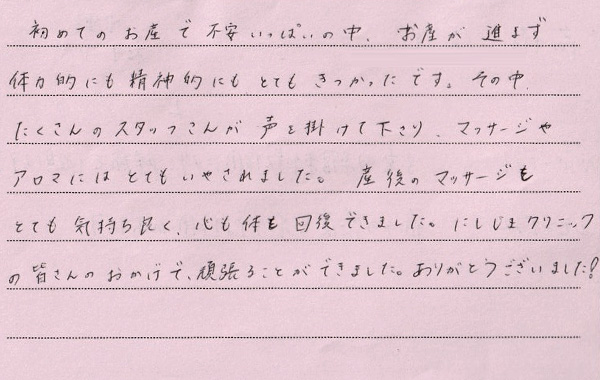 初めてのお産で不安いっぱいの中、お産が進まず
体力的にも精神的にもとてもきつかったです。その中、
たくさんのスタッフさんが声を掛けて下さり、マッサージや
アロマにはとてもいやされました。産後のマッサージも
とても気持ち良く、心も体も回復できました。にしじまクリニック
の皆さんのおかげで、頑張ることができました。ありがとうございました!